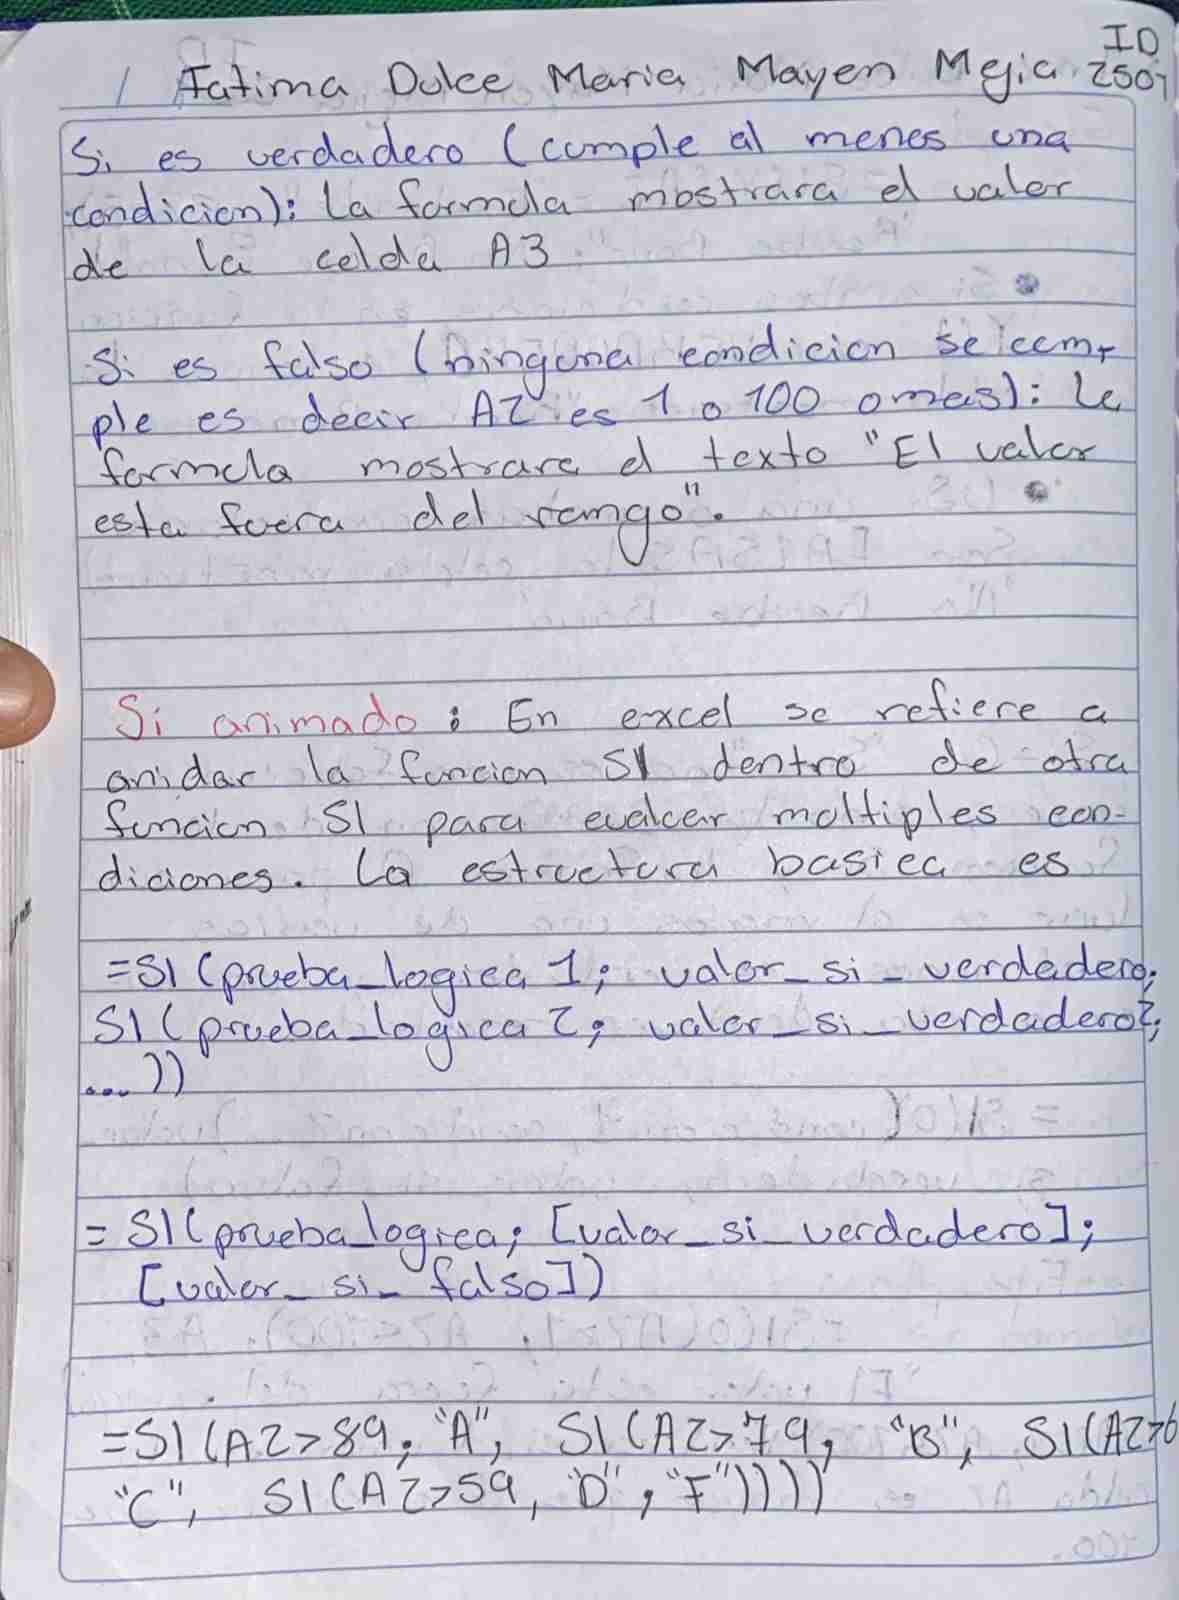 Fatima Dulce Maria Mayen Mejia
ID
250
Si es verdadero (cumple al menos una
condicion): La formula mostrara el valor
de la celda A3
Si es falso (ninguna condicion se cum-
ple es decir A2 es 1 o 100 o mas): La
formula mostrara el texto "El valor
esta fuera del rango".
Si animado: En excel se refiere a
anidar la funcion SI dentro de otra
funcion SI para evaluar multiples con-
diciones. La estructura basica es
=SI(prueba_logica 1; valor_si_verdadero;
SI(prueba_logica 2; valor_si_verdadero2;
...))
= SI(prueba_logica; [valor_si_verdadero];
[valor_si_falso])
=SI(A2>89; "A", SI(A2>79, "B", SI(A2>6
"C", SI(A2>59, "D", "F"))))